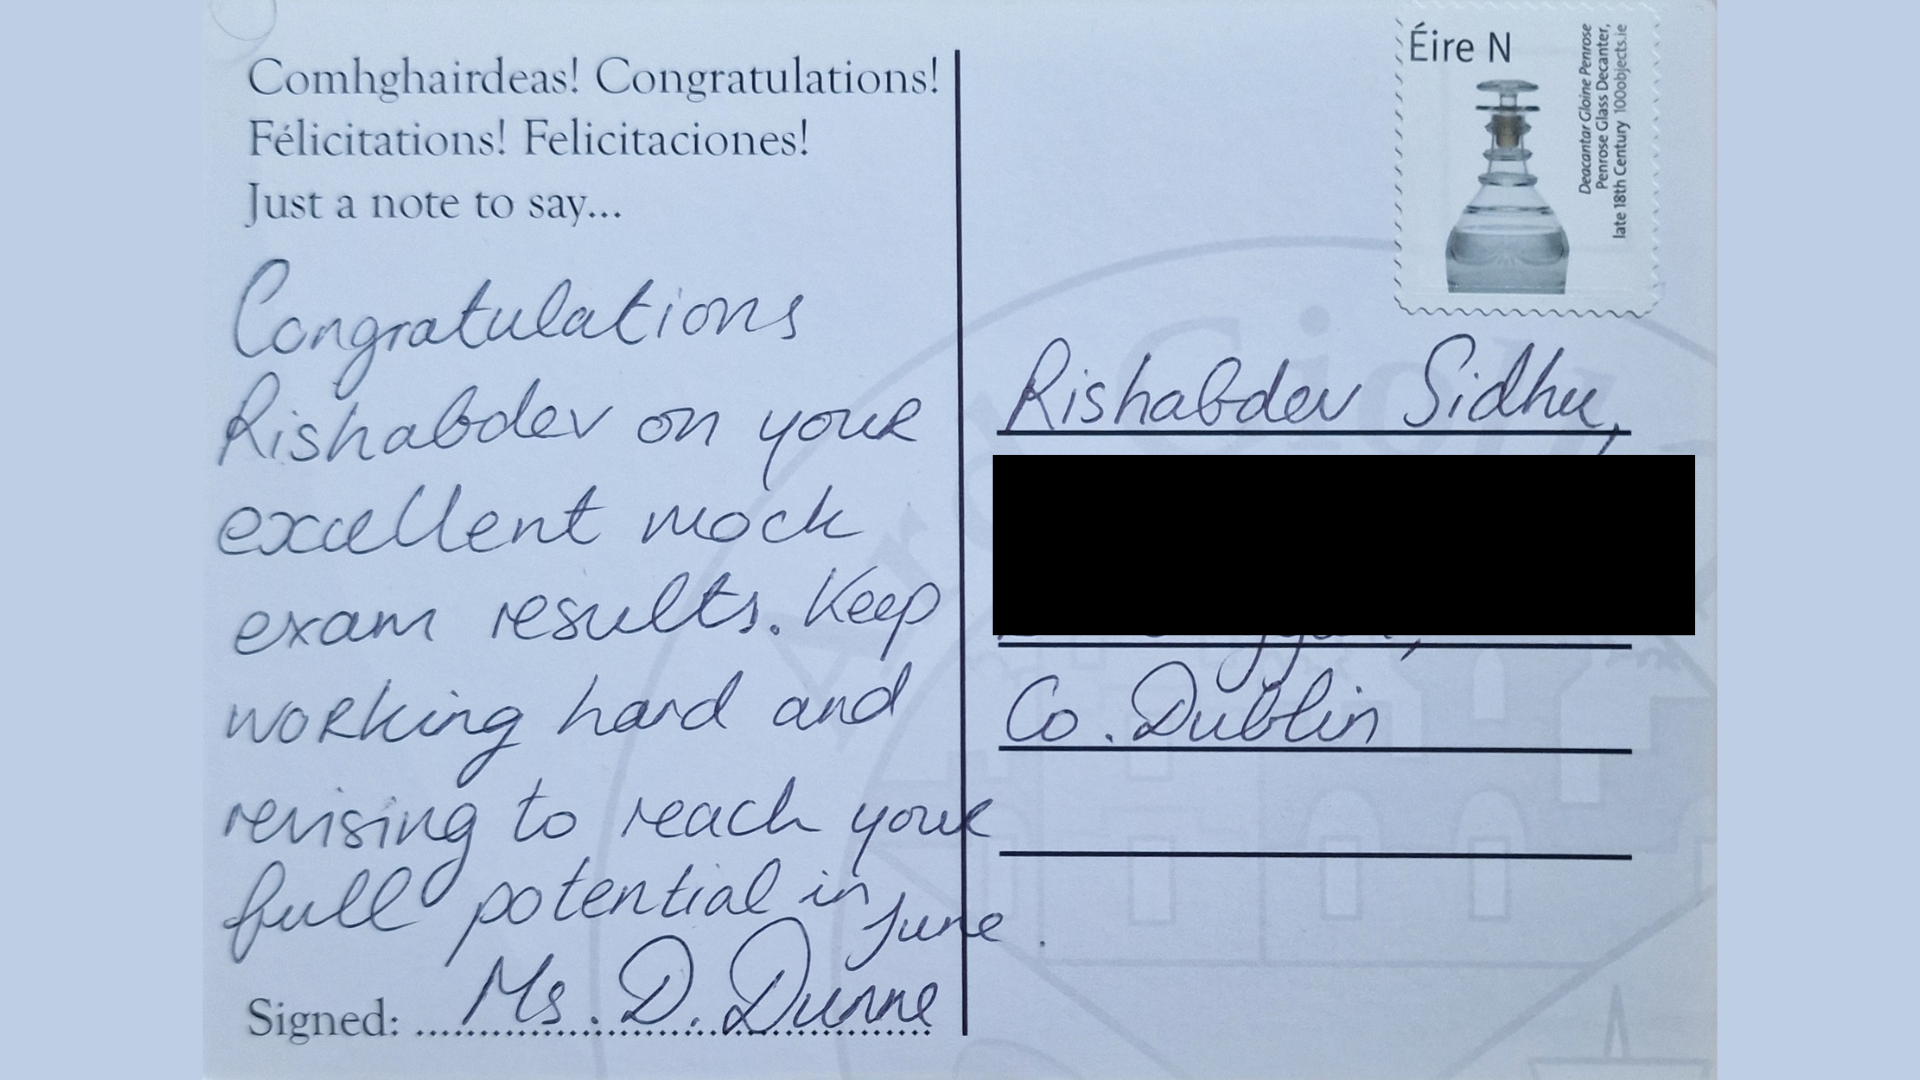 Comhghairdeas! Congratulations!
Félicitations! Felicitaciones!
Just a note to say...
Congratulations
Rishabdev on your
excellent mock
exam results. Keep
working hard and
revising to reach your
full potential in June.
Signed: Ms. D. Dunne
Éire N
Deacantar Gloine Penrose
Penrose Glass Decanter,
late 18th Century 100objects.ie
Rishabdev Sidhu,
Co. Dublin